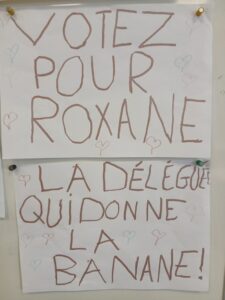 VOTEZ
POUR
ROXANE
LA DÉLÉGUÉ
QUI DONNE
LA
BANANE!